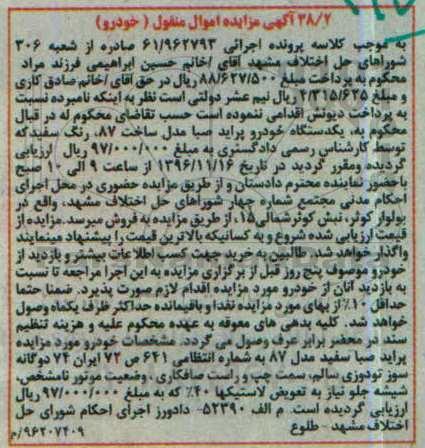 ۳۸/۲ آگهی مزایده اموال منقول ( خودرو)
به موجب کلاسه پرونده اجرائی ۶۱/۹۶۲۷۹۳ صادره از شعبه ۳۰۶
شوراهای حل اختلاف مشهد آقای /خانم حسین ابراهیمی فرزند مراد
محکوم به پرداخت مبلغ ۸۸/۶۲۷/۵۰۰ ریال در حق آقای /خانم صادق کاری
و مبلغ ۴/۳۱۵/۶۲۵ ریال نیم عشر دولتی است نظر به اینکه نامبرده نسبت
به پرداخت دیونش اقدامی ننموده است حسب تقاضای محکوم له در قبال
محکوم به، یکدستگاه خودرو پراید صبا مدل ساخت ۸۷، رنگ سفید که
توسط کارشناس رسمی دادگستری به مبلغ ۹۷/۰۰۰/۰۰۰ ریال ارزیابی
گردیده ومقرر گردید در تاریخ ۱۳۹۶/۱۱/۱۶ از ساعت ۹ الی ۱۰ صبح
باحضور نماینده محترم دادستان و از طریق مزایده حضوری در محل اجرای
احکام مدنی مجتمع شماره چهار شوراهای حل اختلاف مشهد، واقع در
بولوار کوثر، نبش کوثرشمالی۱۵، از طریق مزایده به فروش میرسد.مزایده از
قیمت ارزیابی شده شروع و به کسانیکه بالاترین قیمت را پیشنهاد مینمایند
واگذار خواهد شد. طالبین به خرید جهت کسب اطلاعات بیشتر و بازدید از
خودرو موصوف پنج روز قبل از برگزاری مزایده به این اجرا مراجعه تا نسبت
به بازدید آنان از خودرو مورد مزایده اقدام لازم صورت پذیرد. ضمنا حتما
حداقل ۱۰٪ از بهای مورد مزایده نقدا و باقیمانده حداکثر ظرف یکماه وصول
خواهد شد. کلیه بدهی های معوقه به عهده محکوم علیه و هزینه تنظیم
سند در محضر برابر عرف وصول می گردد. مشخصات خودرو مورد مزایده
پراید صبا سفید مدل ۸۷ به شماره انتظامی ۶۴۱ ص ۷۲ ایران ۷۴ دوگانه
سوز تودوزی سالم، سمت چپ و راست صافکاری ، وضعیت موتور نامشخص،
شیشه جلو نیاز به تعویض لاستیکها ۴۰٪ که به مبلغ ۹۷/۰۰۰/۰۰۰ ریال
ارزیابی گردیده است. م الف ۵۲۳۹۰- دادورز اجرای احکام شورای حل
اختلاف مشهد - طلوع ۹۶۲۰۷۴۰۹/م